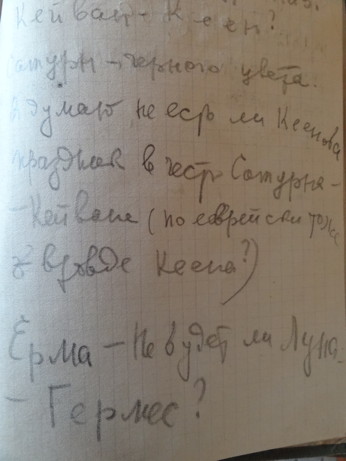 Кейван - Ксен?
Сатурн - черного цвета.
Я думаю, не есть ли Ксенова
праздник в честь Сатурна -
- Кейвана (по еврейски тоже
вроде Ксена?)
Ёрма - Не будет ли Луна -
- Гермес?